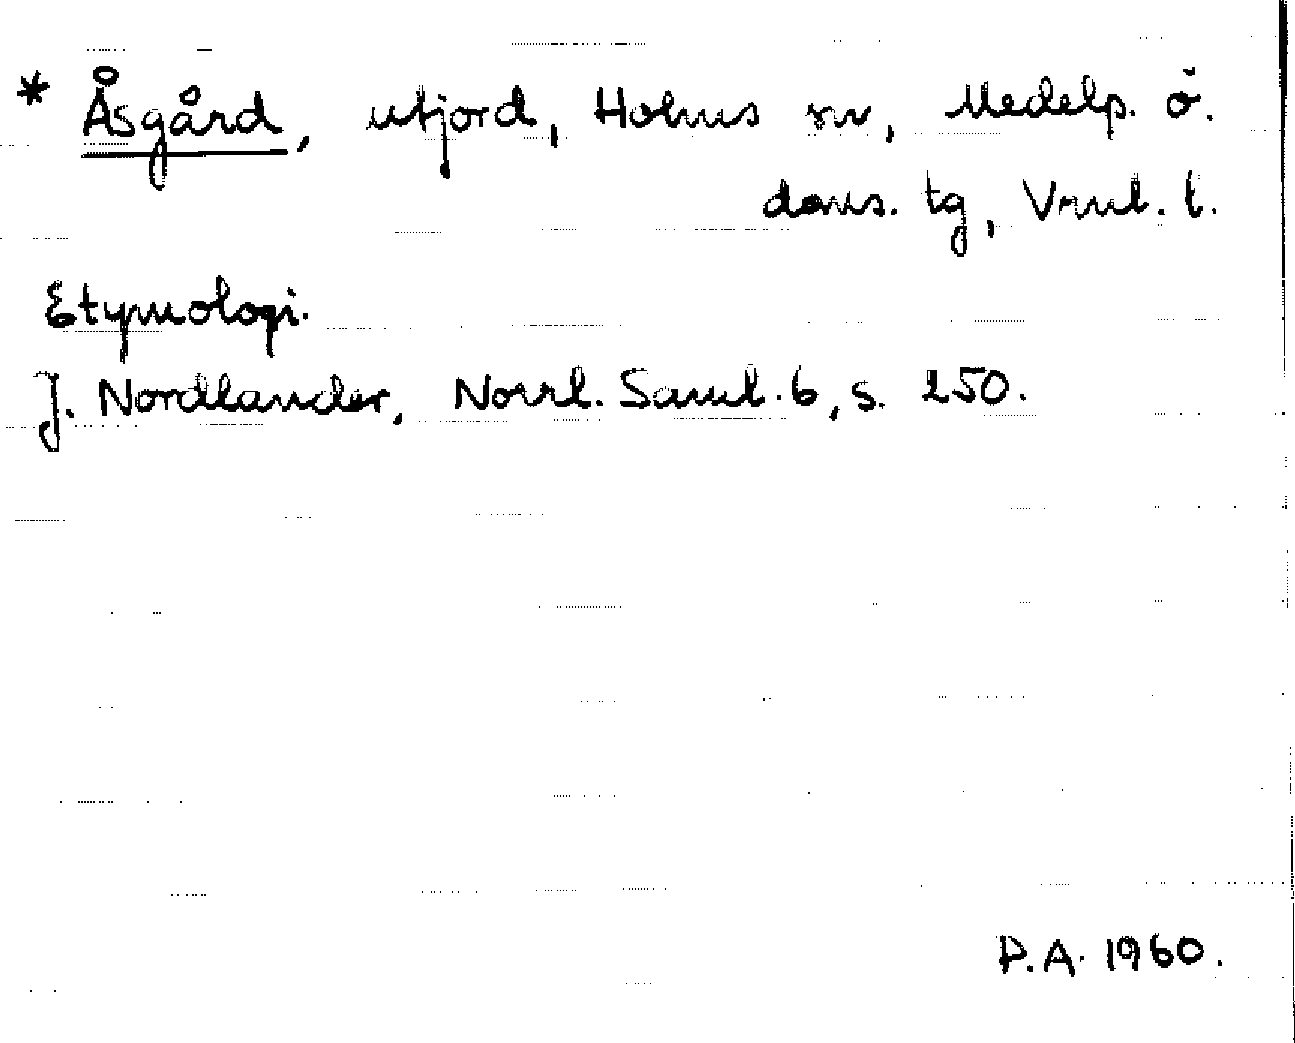 * Åsgård, utjord, Holms sn, Medelp. ö.
doms. tg, Vrml. l.
Etymologi.
J. Nordlander, Norrl. Saml. 6, s. 250.
P.A. 1960.